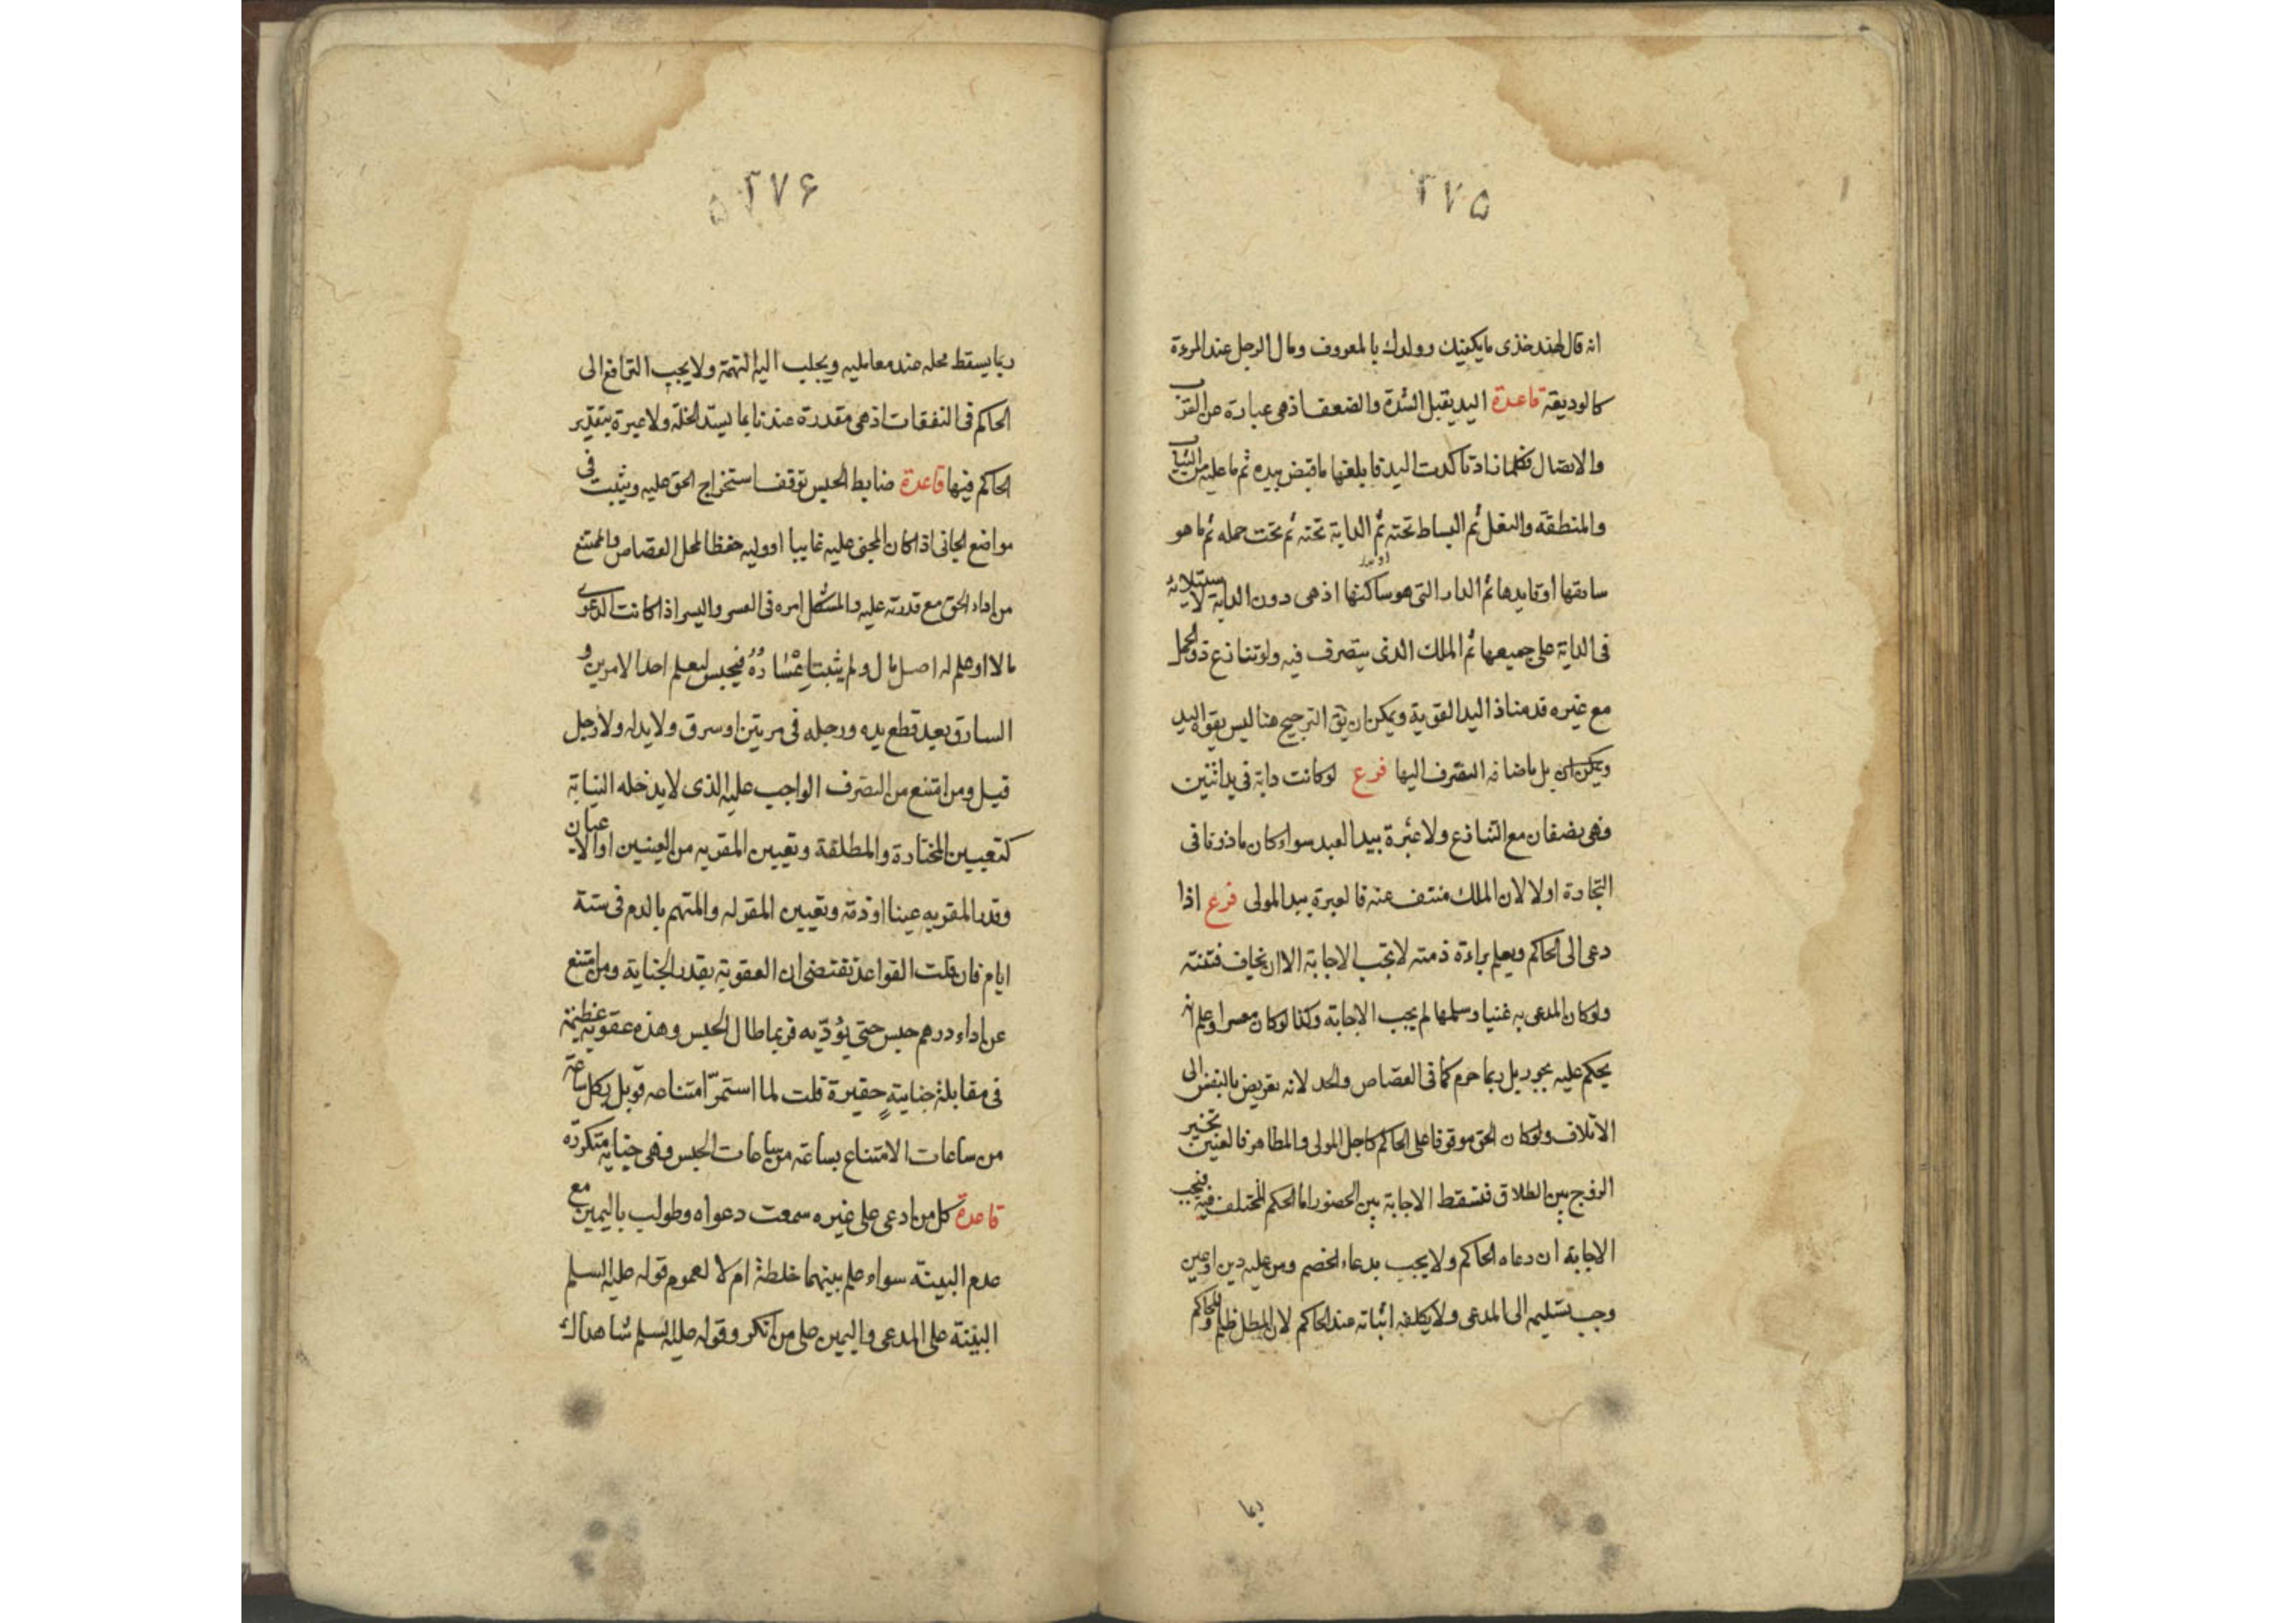 ٢٧٥
انه قال لهند خذى ما يكفيك وولدك بالمعروف ومال الرجل عند المرءة
كالوديعة قاعدة اليد يقبل الشدة والضعف اذ هى عبارة عن القرب
والاتصال فكلما زاد تاكدت اليد فابلغها ما قبض بيده ثم ما عليه من الثياب
والمنطقة والنعل ثم البساط تحته ثم الدابة تحته ثم تحت حمله ثم ما هو
سايقها او قايدها ثم الدار التى هو ساكنها اذ هى دون الدابة لاستيلائه
فى الدابة على جميعها ثم الملك الذى يتصرف فيه ولو تنازع ذو الحمل
مع غيره قدمنا ذا اليد القوية ويمكن ان يق الترجيح هنا ليس بقوة اليد
ويمكن ان بل باضافة التصرف اليها فرع لو كانت دابة فى يد اثنين
فهى نصفان مع التنازع ولا عبرة بيد العبد سواء كان ماذونا فى
التجارة اولا لان الملك منتف عنه فالعبرة بيد المولى فرع اذا
دعى الى الحاكم ويعلم براءة ذمته لا تجب الاجابة الا ان يخاف فتنته
ولو كان المدعى به غنيا وسلمها لم يجب الاجابة وكذا لو كان معسرا وعلم انه
يحكم عليه بجور بل ربما حرم كما فى القصاص والحد لانه تعريض بالنفس الى
الاتلاف ولو كان الحق موقوفا على الحاكم كاجل المولى والمظاهر فالعنين تخير
الزوج بين الطلاق فتسقط الاجابة بين الحضور اما الحكم المختلف فيه فيجب
الاجابة ان دعاه الحاكم ولا يجب بدعاء الخصم ومن عليه دين او عين
وجب تسليمه الى المدعى ولا يكلفه اثباته عند الحاكم لان المطل ظلم وللحاكم
ربما
٢٧۶
ربما يسقط محله عند معامليه ويجلب اليه التهمة ولا يجب الترافع الى
الحاكم فى النفقات اذ هى مقدرة عندنا بما يسد الخلة ولا عبرة بتقدير
الحاكم فيها قاعدة ضابط الحبس توقف استخراج الحق عليه ويثبت فى
مواضع الجانى اذا كان المجنى عليه غايبا او وليه حفظا لمحل القصاص والممتنع
من اداء الحق مع قدرته عليه والمشكل امره فى العسر واليسر اذا كانت الدعوى
مالا او علم له اصل مال ولم يثبت اعساره فيحبس ليعلم احد الامرين و
السارق بعد قطع يده ورجله فى مرتين او سرق ولا يد له ولا رجل
قيل ومن امتنع من التصرف الواجب عليه الذى لا يدخله النيابة
كتعيين المختارة والمطلقة وتعيين المقر به من العينين او الاعيان
وقدر المقر به عينا او ذمة وتعيين المقر له والمتهم بالدم فى ستة
ايام فان قلت القواعد تقتضى ان العقوبة بقدر الجناية ومن امتنع
عن اداء درهم حبس حتى يؤديه فربما طال الحبس وهذه عقوبة عظيمة
فى مقابلة جناية حقيرة قلت لما استمر امتناعه قوبل بكل ساعة
من ساعات الامتناع بساعة من ساعات الحبس وهى جناية متكررة
قاعدة كل من ادعى على غيره سمعت دعواه وطولب باليمين مع
عدم البينة سواء علم بينهما خلطة ام لا لعموم قوله عليه السلم
البينة على المدعى واليمين على من انكر وقوله عليه السلم شاهداك